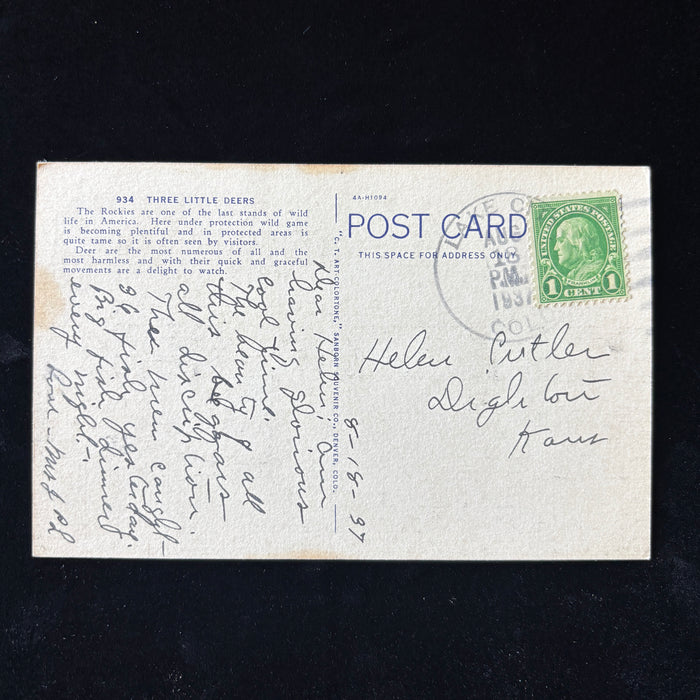 934 THREE LITTLE DEERS
The Rockies are one of the last stands of wild
life in America. Here under protection wild game
is becoming plentiful and in protected areas is
quite tame so it is often seen by visitors.
Deer are the most numerous of all and the
most harmless and with their quick and graceful
movements are a delight to watch.
8-18-37
Dear Helen, am
having glorious
cool time.
The beauty of all
this beggars
all discription.
Then men caught
96 fish yesterday.
Big fish dinner
every night.
Love - Mrs
"C. T. ART-COLORTONE," SANBORN SOUVENIR CO., DENVER, COLO.
4A-H1094
POST CARD
THIS SPACE FOR ADDRESS ONLY
LAKE CITY
AUG
18
P.M.
1937
COLO
UNITED STATES POSTAGE
FRANKLIN
1 CENT 1
Helen Cutler
Dighton
Kans